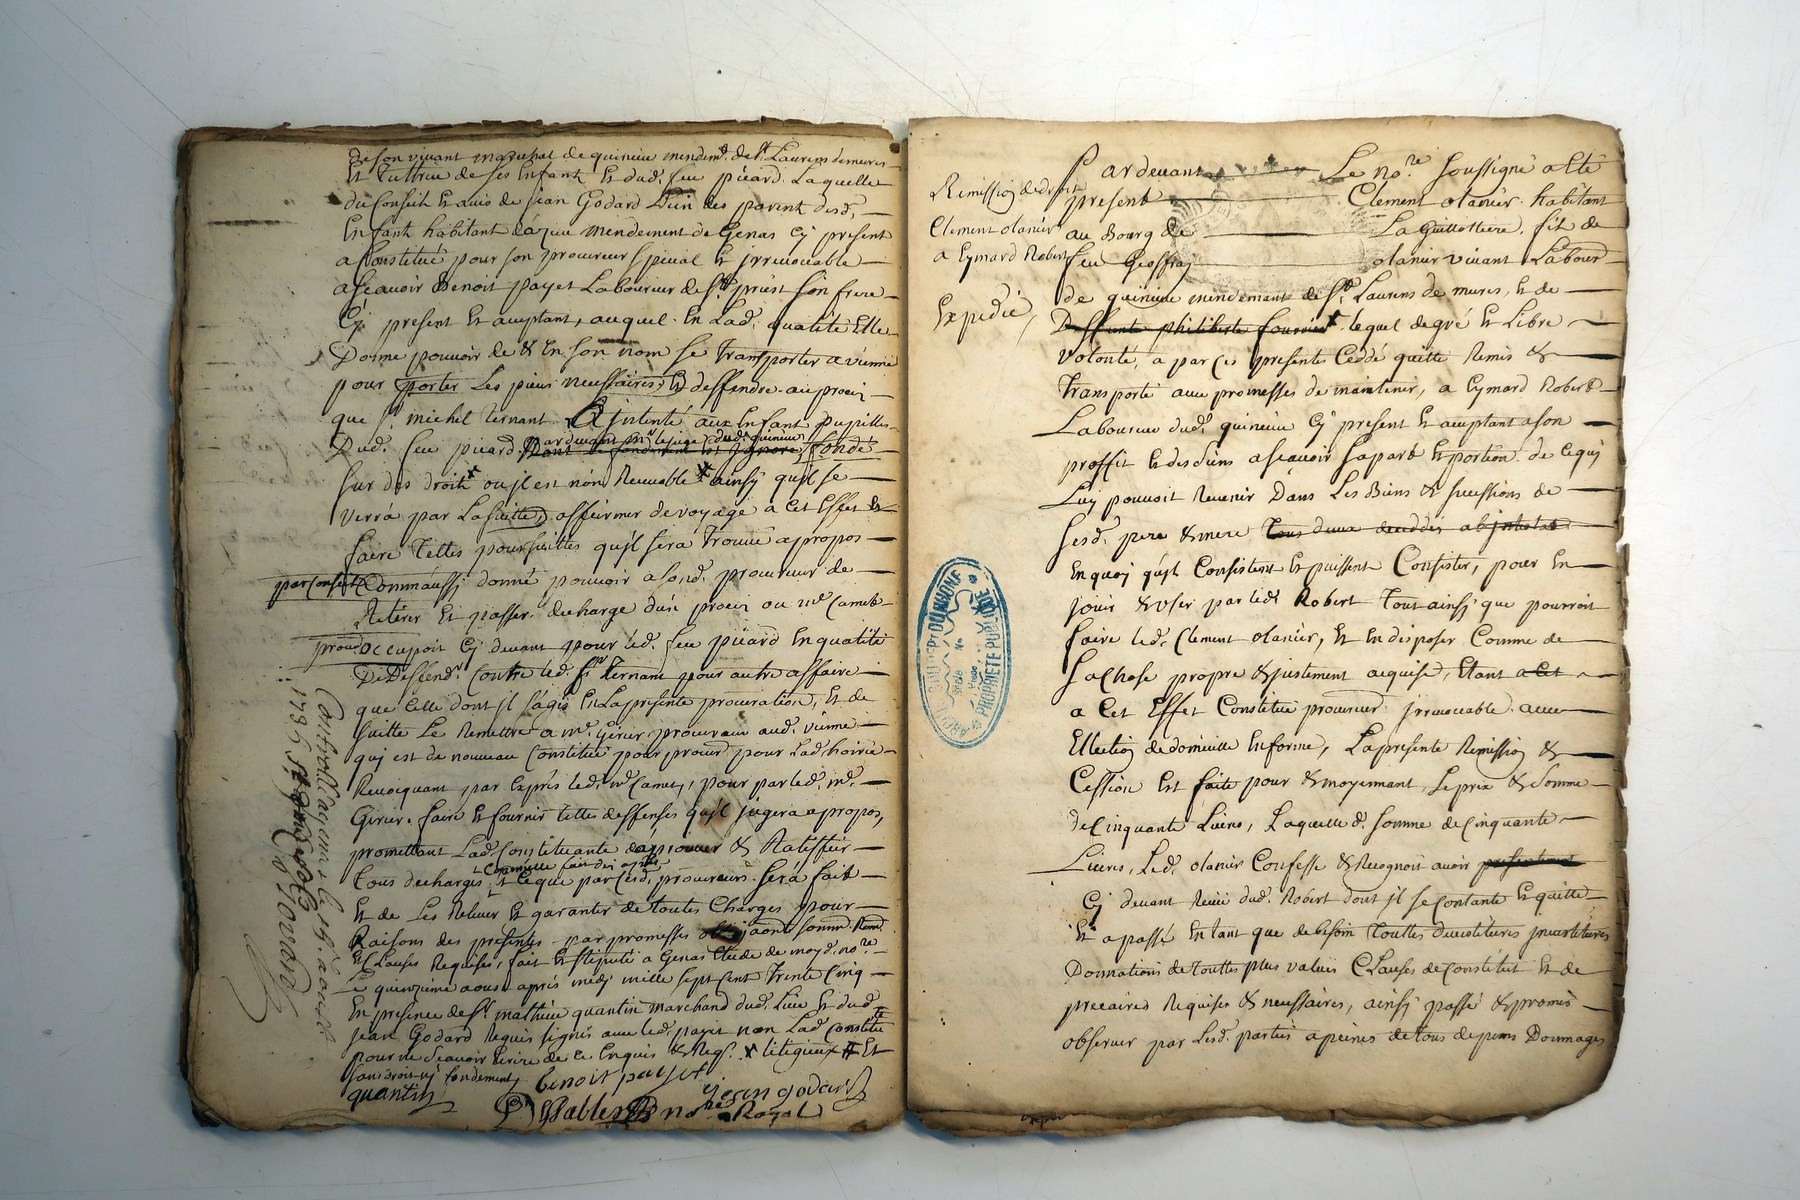 de son vivant marechal de quinieu mendemt. de st. Laurens demures
Et Tuttrice de ses Enfants Et dud. feu picard. Laquelle
du Conseil Et avis de jean Godard L'un des parents desd.
Enfants habitant mendement de Genas Cy present
a Constitué pour son procureur special Et irrevocable
ascavoir Benoit payet Laboureur de St. priest son frere
Cy present Et acceptant, auquel En Lad. qualité Elle
Donne pouvoir de & En son nom se transporter a vienne
pour porter Les pieces necessaires, & deffendre au procez
que sr. michel ternant a intenté aux Enfants pupilles
Dud. feu picard. pardevant mr. le juge dud. quinieu fondé
sur des droits ou jl est non Recevable ainsy qu'jl se
verrà par La suitte, affirmer de voyage a Cet Effet &
faire telles poursuittes qu'jl serà trouvé apropos
par Conseil Comm'aussy donné pouvoir a sond. procureur de
Retirer Et passer decharge d'un procez ou me. Camet
procur. occupoit Cy devant pour led. feu picard En qualité
De Deffendr. Contre led. sr. ternant pour autre affaire
que Celle dont jl s'agit En La presente procuration, Et de
suitte Le Remettre a me. Girier procureur aud. vienne
qui est de nouveau Constitué pour procur. pour Lad. hoirie
Revocquant par Exprés led. me. Camet, pour par led. me.
Girier faire Et fournir telles deffenses qu'jl jugera apropos,
promettant Lad. Constituante dapprouver & Ratiffier
tous decharges Et Ce que par Cesd. procureurs serà fait
Et de Les Relever Et garantir de toutes Charges pour
Raisons des presentes par promesses
Et Clauses Requises, fait Et stipulé a Genas Etude de moyd. nore.
Le quinzieme aoust aprés midy mille sept Cent Trente Cinq
En presence de sr. mathieu quantin marchand dud. Lieu Et dud.
jean Godard Requis signés avec led. payet non Lad. Constite.
pour ne Scavoir Ecrire de Ce Enquis & Reqs. x litigieux # Et
sans droit ny fondement
benoit payet
quantin
jean godard
nore. Royal
Controllé a
Remission de droit
Clement olanier
a Eymard Robert
Expedié,
Pardevant Le nore. soussigné a Eté
present Clement olanier habitant
au Bourg de La Guillottiere. fils de
feu Geoffray olanier vivant Labour
de quinieu mendemant de St. Laurens de mures, Et de
Deffunte philiberte fournier x lequel de gré Et Libre
Volonté, a par Ces presentes Ceddé quitté Remis &
Transporté avec promesses de maintenir, a Eymard Robert
Laboureur dud. quinieu Cy present Et acceptant a son
proffit Et des siens ascavoir sa part Et portion de Ce qui
Luy pouvoit Revenir Dans Les Biens & successions de
Sesd. pere & mere Tous deux deceddés abjntestat
En quoy qu'jls Consistent Et puissent Consister, pour En
jouir & user par led. Robert Tout ainsy que pourroit
faire led. Clement olanier, Et En disposer Comme de
Sa Chose propre & justement acquise, Etant a Cet
a Cet Effet Constitué procureur jrrevocable avec
Ellection de domicille En forme, La presente Remission &
Cession Est faite pour & moyennant Le prix & somme
de Cinquante Livres, Laquelle d. somme de Cinquante
Livres, Led. olanier Confesse & Recognoit avoir
Cy devant Receu dud. Robert dont jl se Contante Et quitte
Et a passé En tant que de besoin Touttes devestitures jnvestitures
Donnations de touttes plus values Clauses de Constitut Et de
precaires Requises & necessaires, ainsy passé & promis
observer par Lesd. parties a peines de tous depens Dommages
PROPRIETE PUBLIQUE